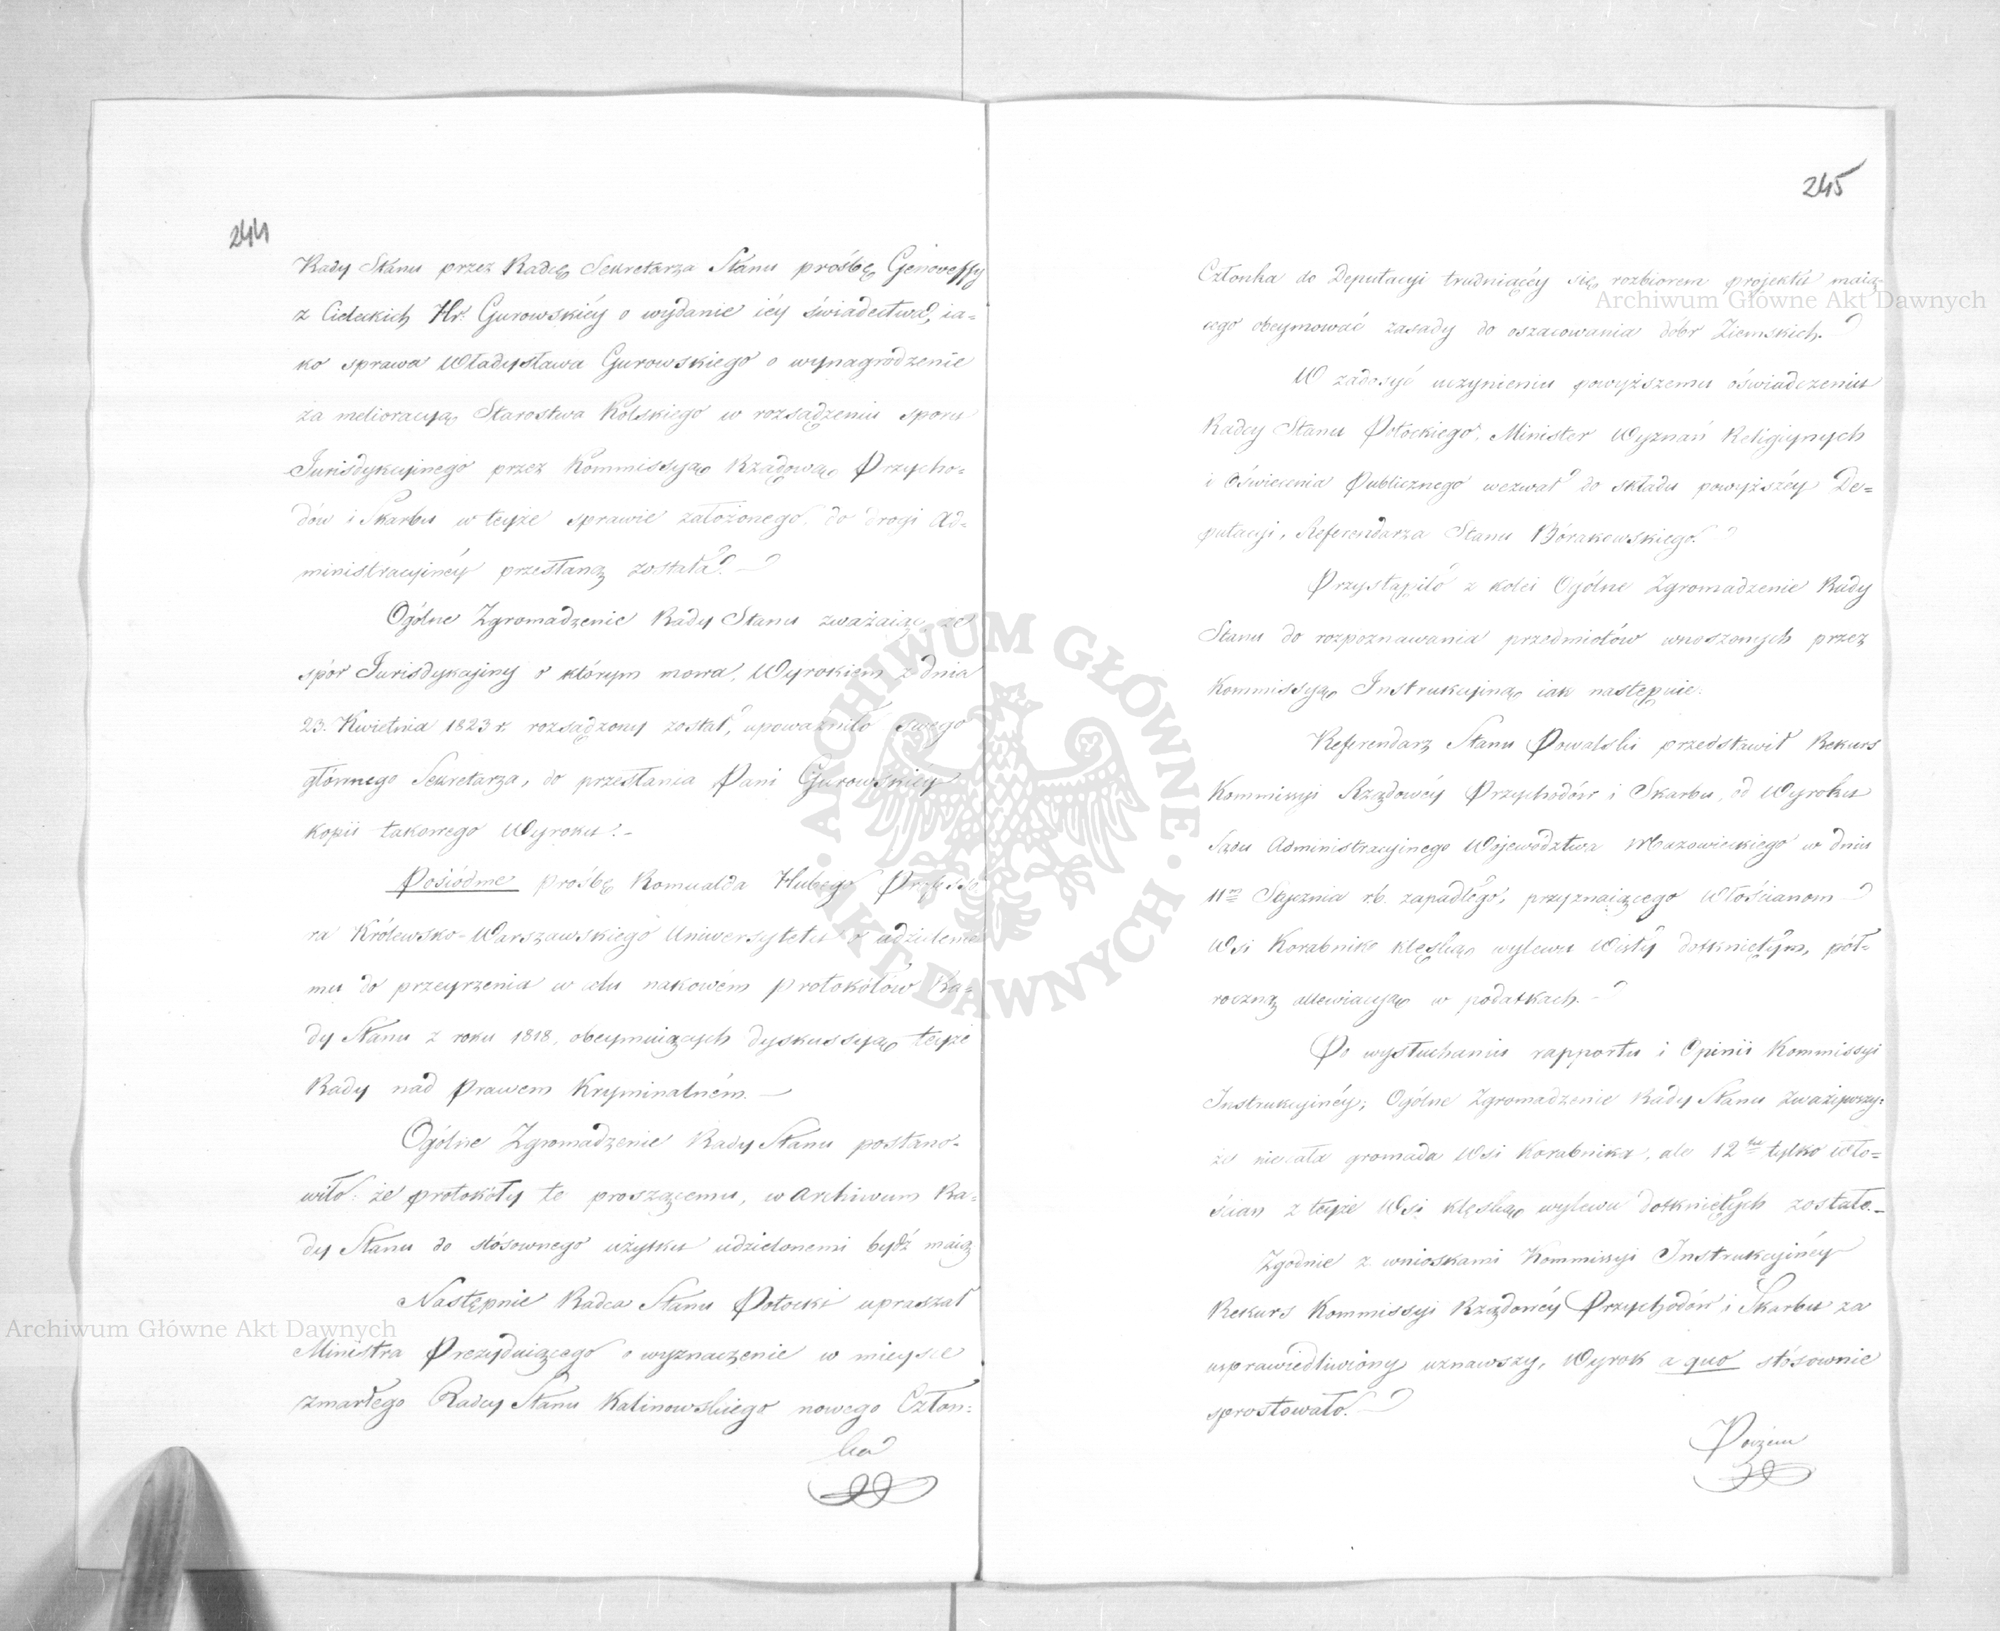 244
Rady Stanu przez Radcę Sekretarza Stanu prośbę Genoveffy
z Cieleckich Hr. Gurowskiéy o wydanie iéy świadectwa, ia-
ko sprawa Władysława Gurowskiego o wynagrodzenie
za melioracyą Starostwa Kolskiego w rozsądzeniu sporu
Jurisdykcyinego przez Kommissyą Rządową Przycho-
dów i Skarbu w teyże sprawie założonego, do drogi Ad-
ministracyinéy przesłaną została.
Ogólne Zgromadzenie Rady Stanu zważaiąc, że
spór Jurisdykcyiny o którym mowa, Wyrokiem z dnia
23. Kwietnia 1823 r. rozsądzony został, upoważniło swego
głównego Sekretarza, do przesłania Pani Gurowskiéy
kopii takowego Wyroku.-
Posiódme prośbę Romualda Hubego Professo
ra Królewsko-Warszawskiego Uniwersytetu o udzielenie
mu do przeyrzenia w celu nakowém protokółów Ra-
dy Stanu z roku 1818, obeymuiących dyskussyą teyże
Rady nad Prawem Kryminalném.-
Ogólne Zgromadzenie Rady Stanu postano-
wiło: że protokóły te proszącemu, w Archiwum Ra-
dy Stanu do stósownego użytku udzielonemi bydź maią
Następnie Radca Stanu Potocki upraszał
Ministra Prezyduiącego o wyznaczenie w mieysce
zmarłego Radcy Stanu Kalinowskiego nowego Człon-
ka
245
Członka do Deputacyi trudniącéy się rozbiorem projektu maią-
cego obeymować zasady do oszacowania dóbr Ziemskich.
W zadosyć uczynieniu powyższemu oświadczeniu
Radcy Stanu Potockiego, Minister Wyznań Religiynych
i Oświecenia Publicznego wezwał do składu powyższéy De-
putacyi, Referendarza Stanu Bórakowskiego.
Przystąpiło z kolei Ogólne Zgromadzenie Rady
Stanu do rozpoznawania przedmiotów wnoszonych przez
Kommissyą Instrukcyiną iak następuie:
Referendarz Stanu Powalski przedstawił Rekurs
Kommissyi Rządowéy Przychodów i Skarbu, od Wyroku
Sądu Administracyinego Województwa Mazowieckiego w dniu
11go Stycznia r.b. zapadłego, przyznaiącego Włościanom
Wsi Korabnika klęską wylewu Wisły dotkniętym, pół-
roczną allewiacyą w podatkach.-
Po wysłuchaniu rapportu i Opinii Kommissyi
Instrukcyinéy; Ogólne Zgromadzenie Rady Stanu zważywszy:
że niecała gromada Wsi Korabnika, ale 12tu tylko Wło-
ścian z teyże Wsi klęską wylewu dotkniętych zostało.-
Zgodnie z wnioskami Kommissyi Instrukcyinéy
Rekurs Kommissyi Rządowéy Przychodów i Skarbu za
usprawiedliwiony uznawszy, Wyrok a quo stósownie
sprostowało.
Poczem
ARCHIWUM GŁÓWNE AKT DAWNYCH
Archiwum Główne Akt Dawnych
Archiwum Główne Akt Dawnych